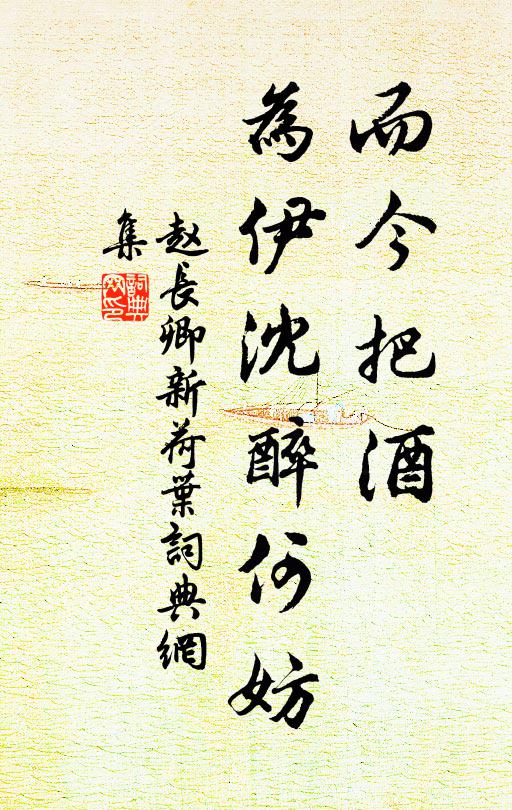 而今把酒
為伊沈醉何妨
赵長卿新荷葉詞典網
集
詞典
网印